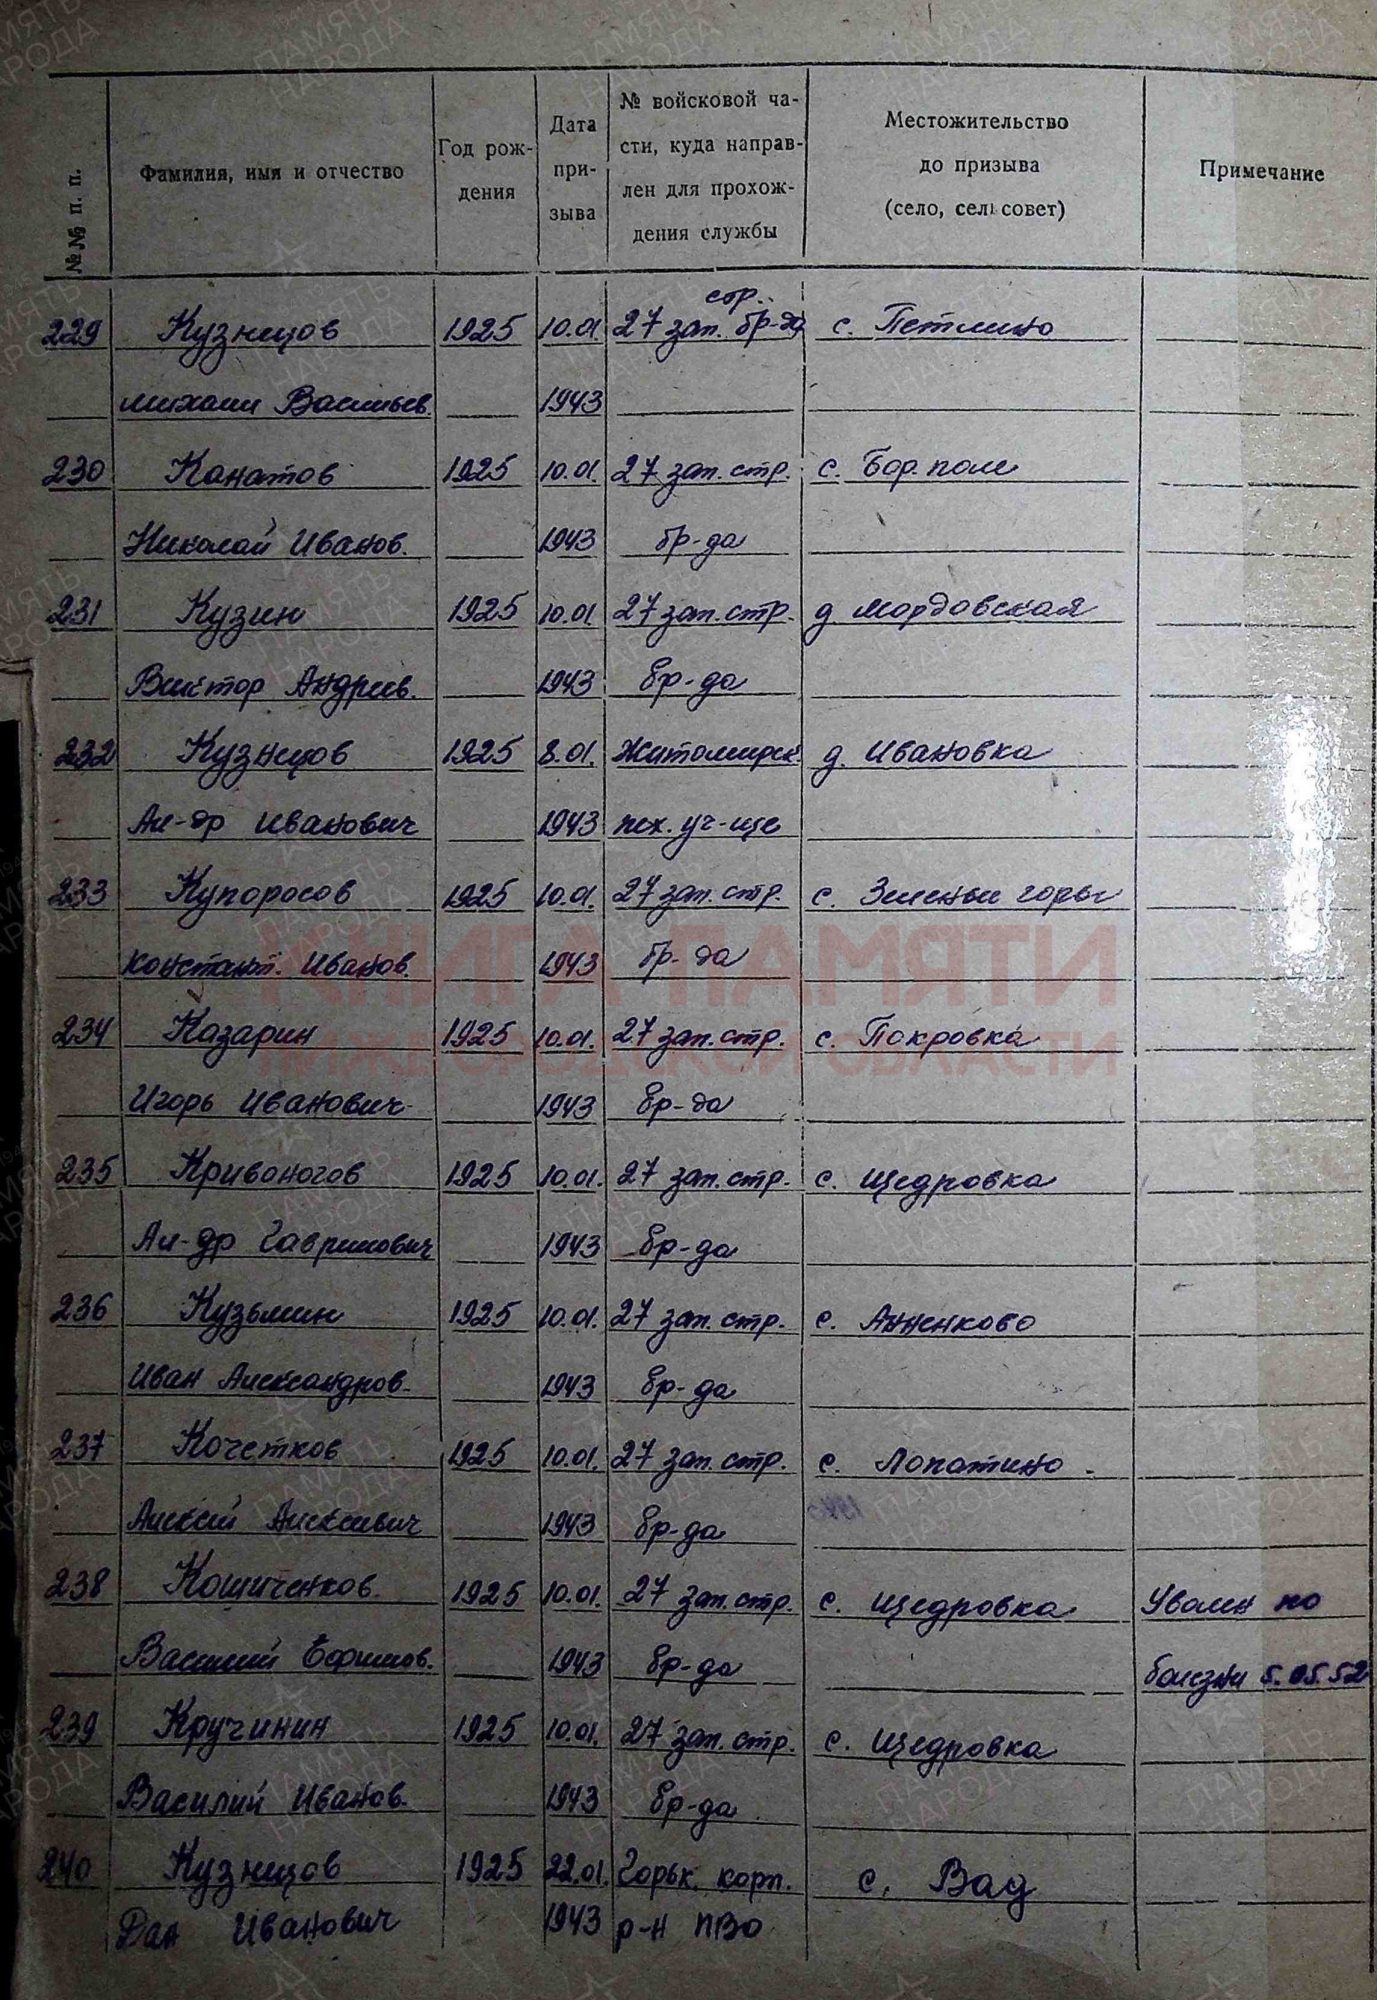 №№ п. п.
Фамилия, имя и отчество
Год рож-
дения
Дата
при-
зыва
№ войсковой ча-
сти, куда направ-
лен для прохож-
дения службы
Местожительство
до призыва
(село, сельсовет)
Примечание
стр.
229 Кузнецов 1925 10.01. 27 зап. бр-да с. Петлино
Михаил Васильев. 1943
230 Канатов 1925 10.01. 27 зап. стр. с. Бор. поле
Николай Иванов. 1943 бр-да
231 Кузин 1925 10.01. 27 зап. стр. д Мордовская
Виктор Андреев. 1943 бр-да
232 Кузнецов 1925 8.01. Житомирск. д. Ивановка
Ал-др Иванович 1943 пех. уч-ще
233 Купоросов 1925 10.01. 27 зап. стр. с. Зеленые горы
Констант. Иванов. 1943 бр-да
КНИГА ПАМЯТИ
234 Казарин 1925 10.01. 27 зап. стр. с. Покровка
НИЖЕГОРОДСКОЙ ОБЛАСТИ
Игорь Иванович 1943 бр-да
235 Кривоногов 1925 10.01. 27 зап. стр. с. Щедровка
Ал-др Гаврилович 1943 бр-да
236 Кузьмин 1925 10.01. 27 зап. стр. с. Анненково
Иван Александров. 1943 бр-да
237 Кочетков 1925 10.01. 27 зап. стр. с. Лопатино
Алексей Алексеевич 1943 бр-да
238 Кошиченков. 1925 10.01. 27 зап. стр. с. Щедровка Уволен по
Василий Ефимов. 1943 бр-да болезни 5.05.52
239 Кручинин 1925 10.01. 27 зап. стр. с. Щедровка
Василий Иванов. 1943 бр-да
240 Кузнецов 1925 22.01. Горьк. корп. с. Вад
Иванович 1943 р-н ПВО
ПАМЯТЬ
НАРОДА